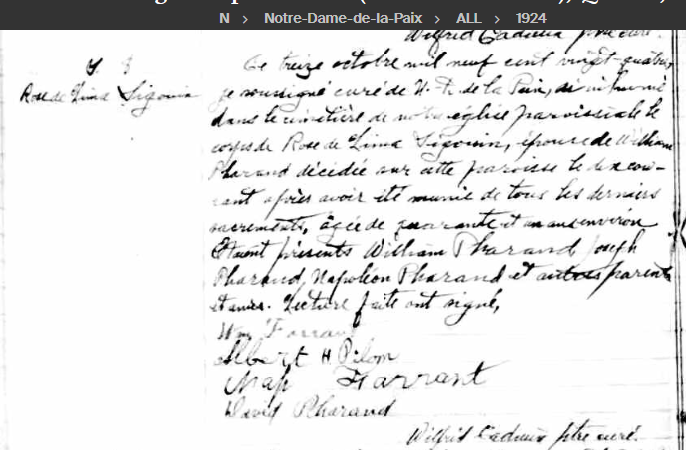 N > Notre-Dame-de-la-Paix > ALL > 1924
Wilfrid Cadieux ptre curé.
S
Rose de Lima Sigouin
Ce treize octobre mil neuf cent vingt-quatre,
je soussigné curé de N.-D. de la Paix, ai inhumé
dans le cimetière de notre église paroissiale le
corps de Rose de Lima Sigouin, épouse de William
Pharand décédée sur cette paroisse le dix cou-
rant après avoir été munie de tous les derniers
sacrements, âgée de quarante et un ans environ
Étaient présents William Pharand, Joseph
Pharand, Napoléon Pharand et autres parents
et amis. Lecture faite ont signé,
Wm Farrant
Albert H Pilon
Nap Farrant
David Pharand
Wilfrid Cadieux ptre curé.